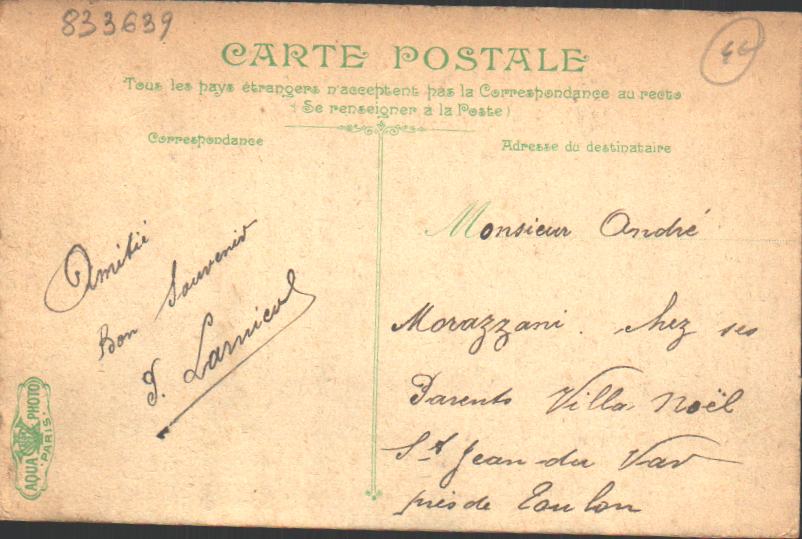 833639
44
CARTE POSTALE
Tous les pays étrangers n'acceptent pas la Correspondance au recto
(Se renseigner à la Poste)
Correspondance
Adresse du destinataire
Amitié
Bon Souvenir
Monsieur André
Morazzani. chez ses
Parents Villa Noël
St Jean du Var
près de Toulon
AQUA PHOTO
PARIS